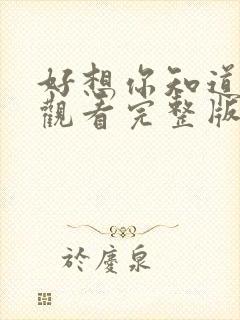 好想你知道
觀看完整版
於慶泉